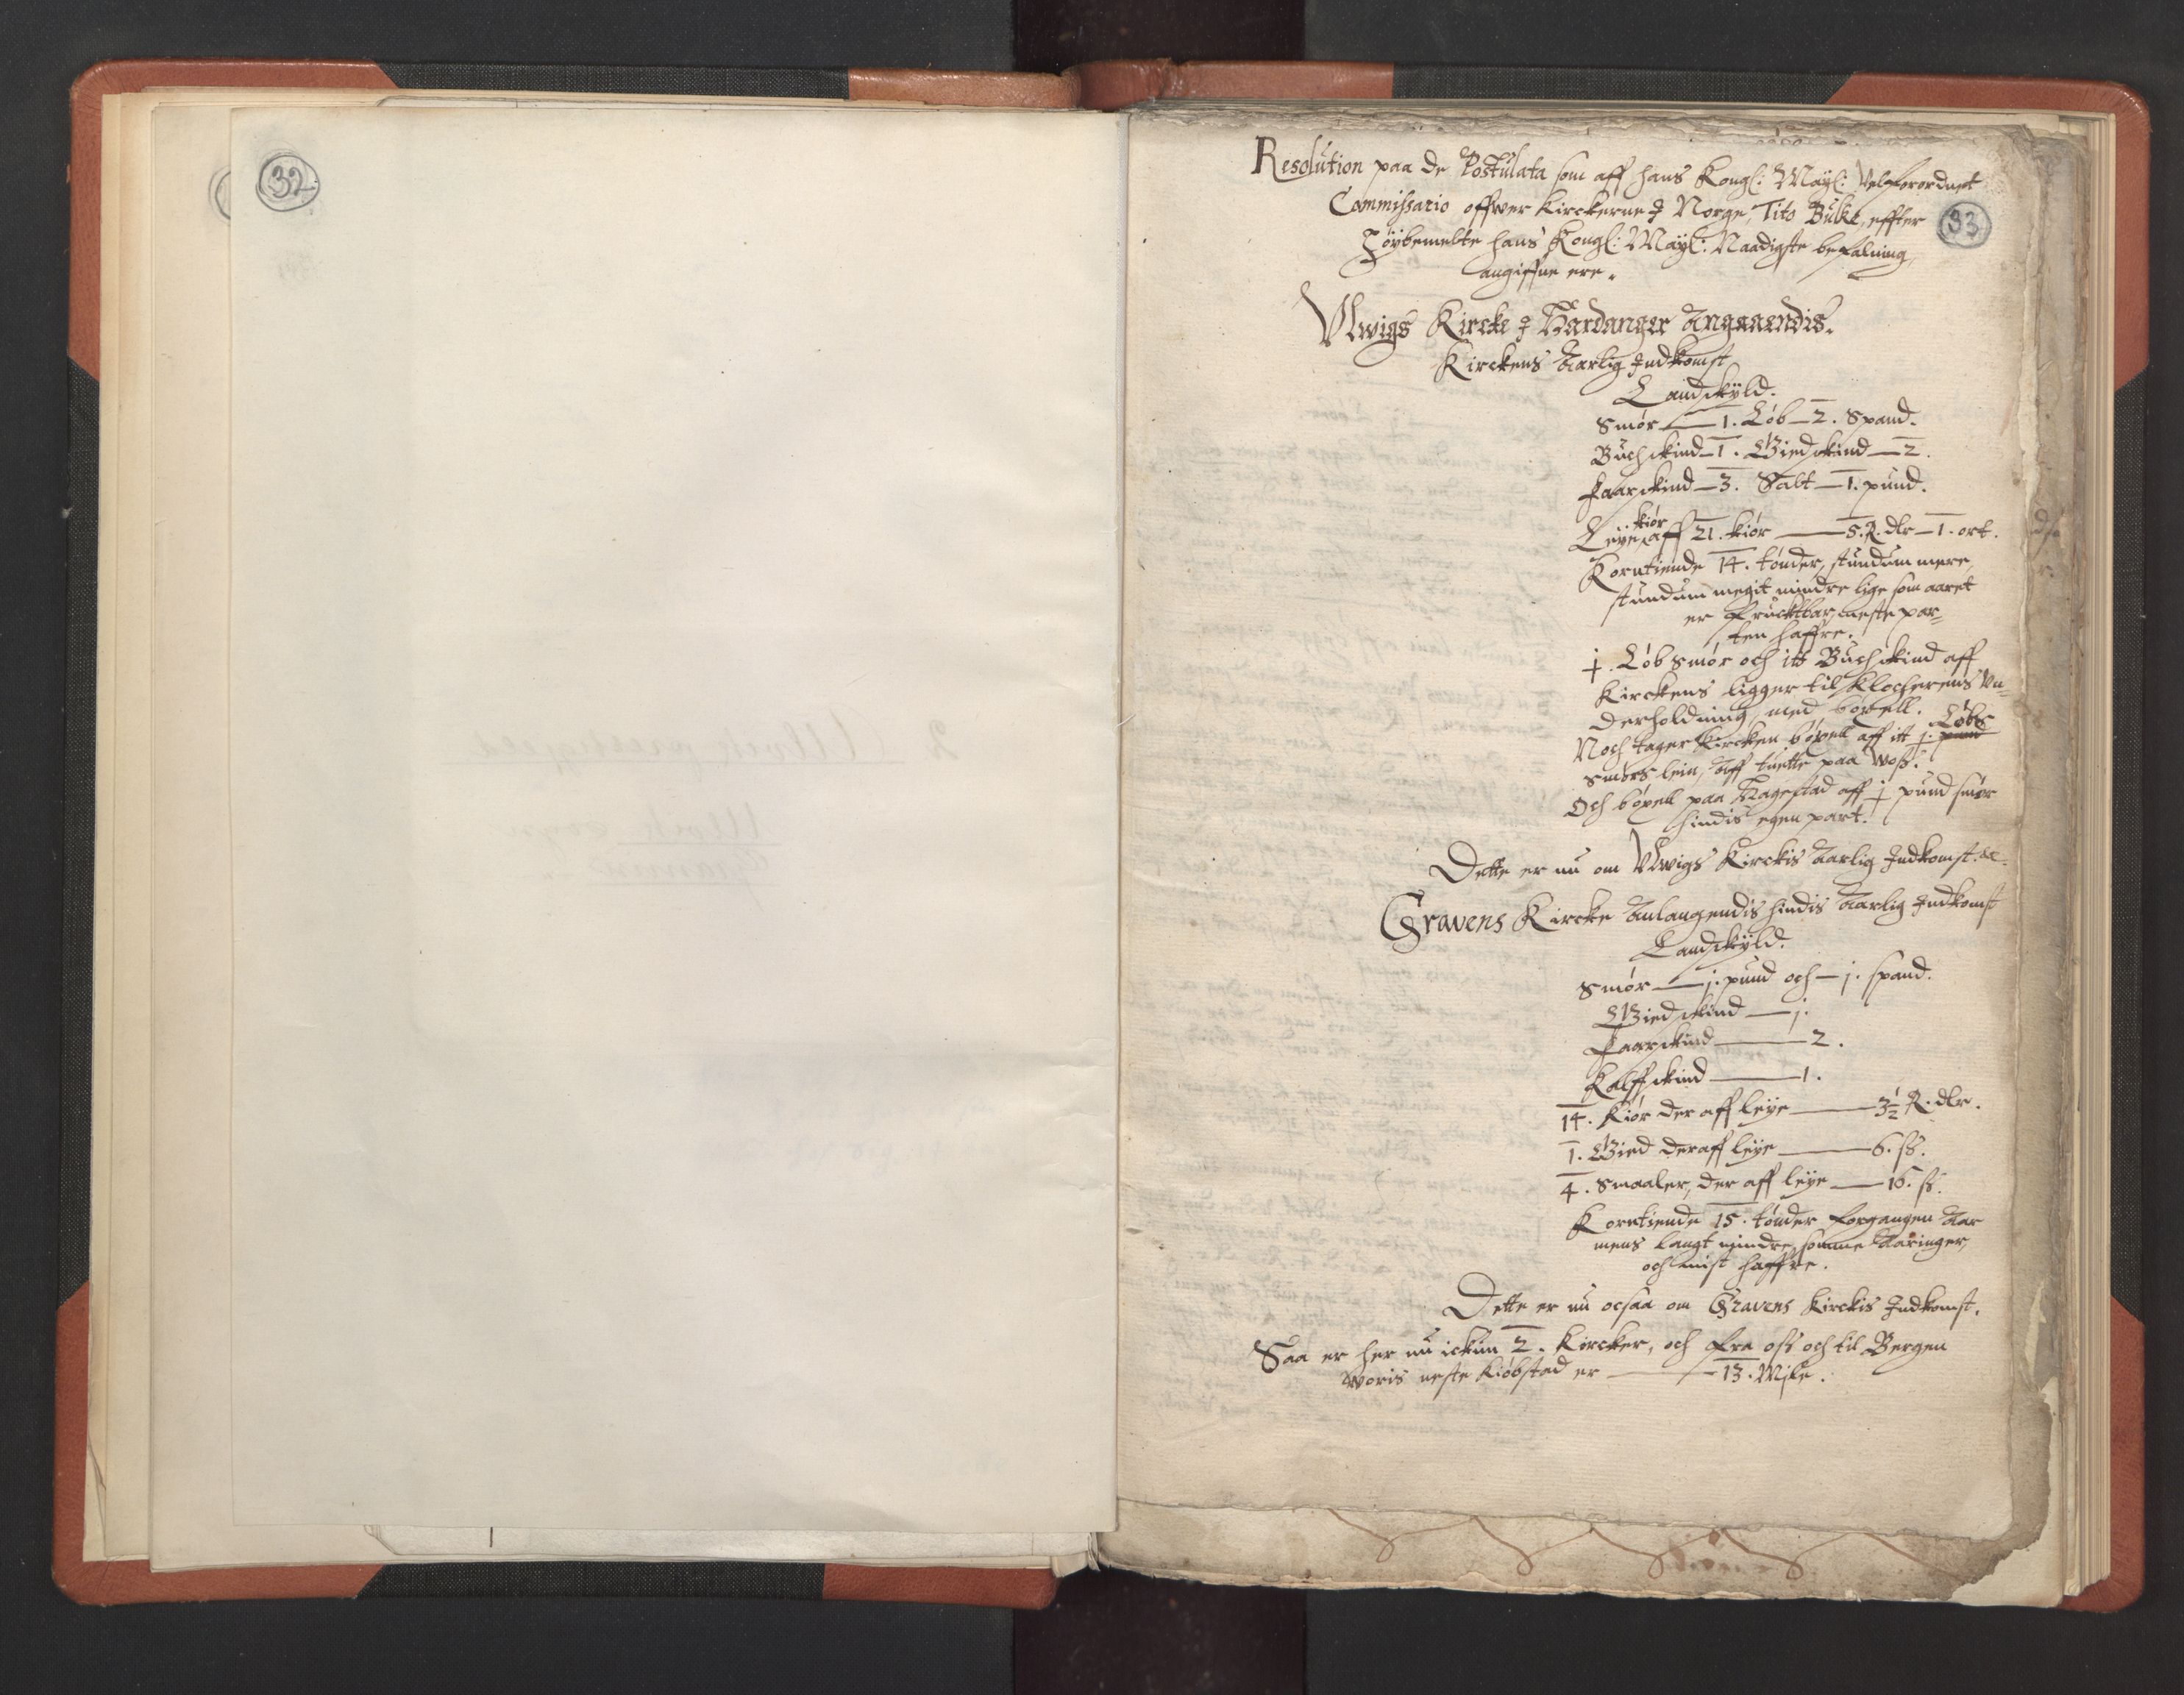 32
33
Resolution paa de Postulata som aff hans Kongl: Mayt: Velforordnet
Commissario offwer Kirckerne J Norge, Tito Bulke, effter
Höybemelte hans Kongl: Mayt: Naadigste befalning,
angiffne ere.
Vlwigs Kircke J Hardanger Angaaendis.
Kirckens Aarlig Indkomst
Landskyld.
Smör — 1. Löb — 2. Spand.
Buchskind — 1. Giedskind — 2.
Faarskind — 3. Salt — 1. pund.
kiör
Leye aff 21. kiör — 5. R. dlr — 1. ort.
Korntiende 14. tönder, stundum mere,
stundum megit mindre lige som aaret
er fruchtbar, meste par-
ten haffre.
j. Löb smör och itt Buchskind aff
Kirckens ligger til Klocherens Vn-
derholdning, med böxell.
Löbs
Noch tager Kircken böxell aff itt j. pund
smörs lein, Aff tuette paa Woss.
Och böxell paa Hagestad aff j pund smör
hindis egen part.
Dette er nu om Vlwigs Kirckis Aarlig Indkomst. etc.
Gravens Kircke Anlangendis hindis Aarlig Indkomst
Landskyld.
Smör — j. pund och — j. spand.
Giedskind — j.
Faarskind — 2.
Kalffskind — 1.
14. Kiör der aff leye — 3½ R. dlr.
1. Gied deraff leye — 6. ß.
4. Smaaler, der aff leye — 16. ß.
Korntiende 15. tönder forgangen Aar
mens langt mindre somme Aaringer,
och mist haffre.
Dette er nu ocsaa om Gravens Kirckis Indkomst.
Saa er her nu ickun 2. Kircker, och fra oss och til Bergen
woris neste Kiöbstad er — 13. Mile.